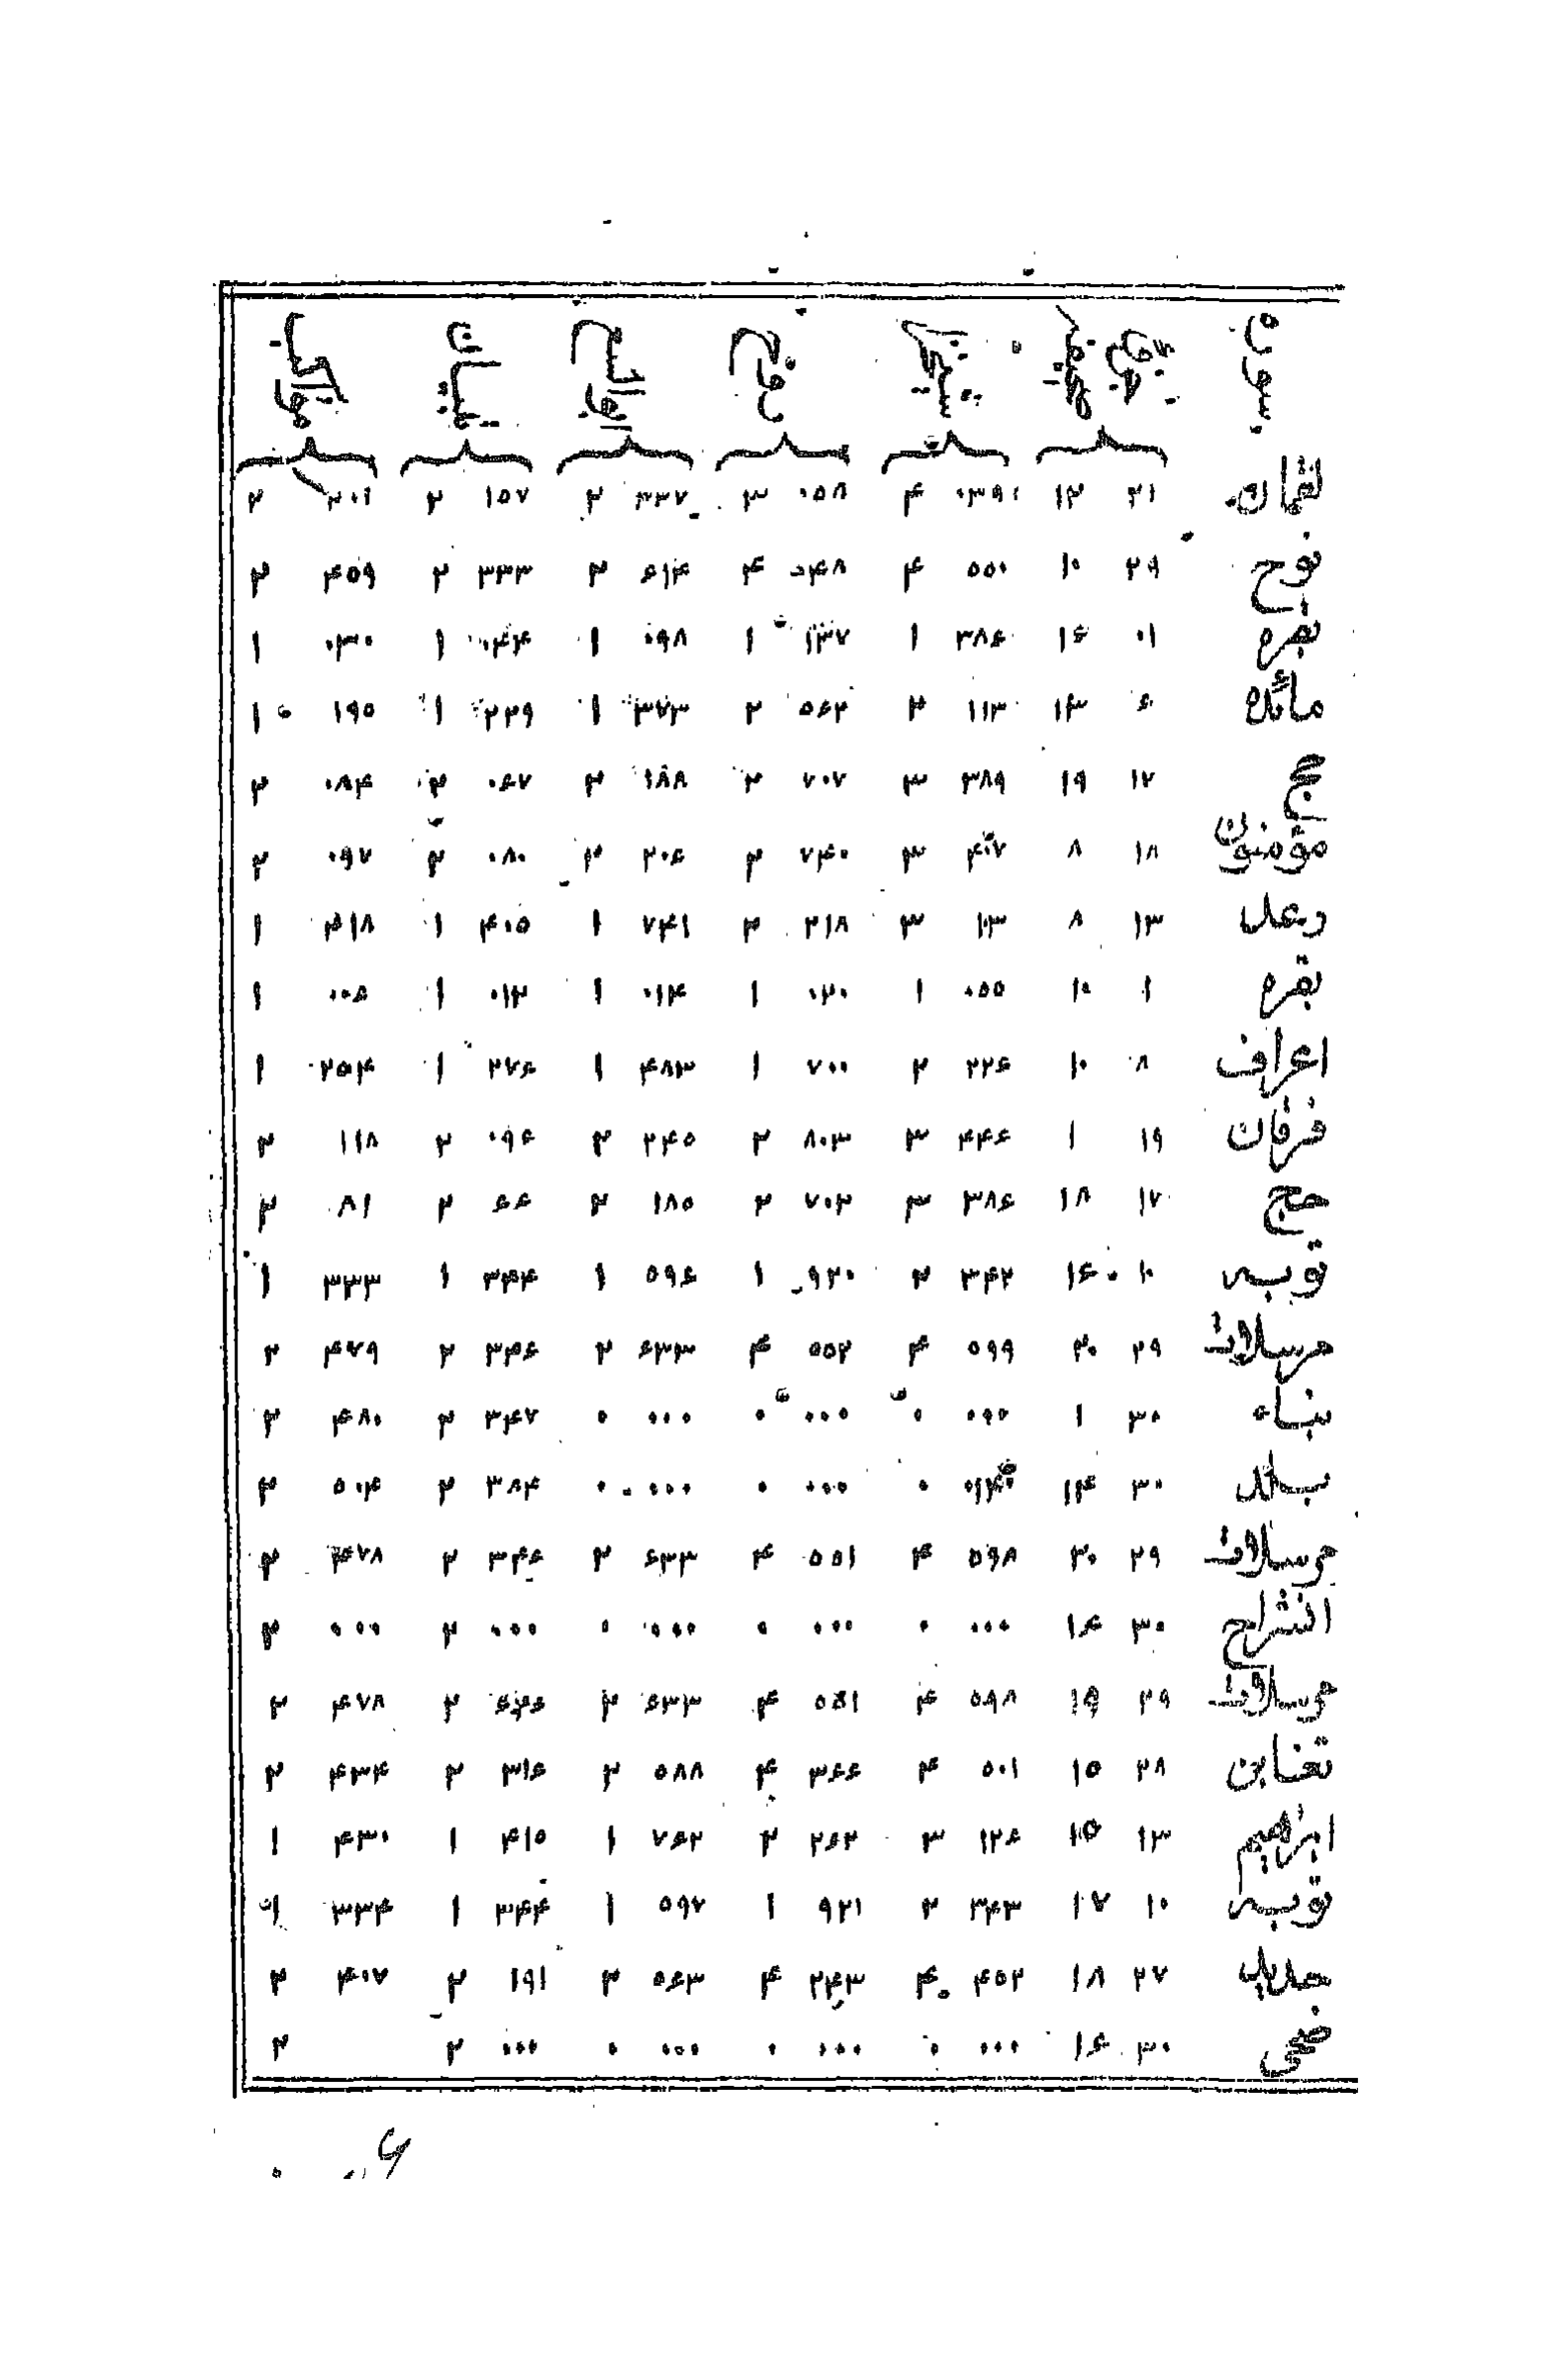 سوره
لقمان ۲۱ ۱۲ ۰۳۹۱ ۴ ۰۵۸ ۳ ۳۳۷ ۲ ۱۵۷ ۲ ۲۰۱ ۲
نوح ۲۹ ۱۰ ۵۵۰ ۴ ۰۴۸ ۴ ۶۱۴ ۲ ۳۳۳ ۲ ۴۵۹ ۲
بقره ۰۱ ۱۶ ۳۸۶ ۱ ۱۳۷ ۱ ۰۹۸ ۱ ۰۴۴ ۱ ۰۳۰ ۱
مائده ۶ ۱۳ ۱۱۳ ۲ ۵۶۲ ۲ ۳۷۳ ۱ ۲۲۹ ۱ ۱۹۵ ۱
حج ۱۷ ۱۹ ۳۸۹ ۳ ۷۰۷ ۲ ۱۸۸ ۲ ۰۶۷ ۲ ۰۸۴ ۲
مؤمنون ۱۸ ۸ ۴۰۷ ۳ ۷۴۰ ۲ ۲۰۶ ۲ ۰۸۰ ۲ ۰۹۷ ۲
رعد ۱۳ ۸ ۱۰۳ ۳ ۲۱۸ ۲ ۷۴۱ ۱ ۴۰۵ ۱ ۴۱۸ ۱
بقره ۱ ۱۰ ۰۵۵ ۱ ۰۲۰ ۱ ۰۱۴ ۱ ۰۱۲ ۱ ۰۰۶ ۱
اعراف ۸ ۱۰ ۲۲۶ ۲ ۷۰۰ ۱ ۴۸۳ ۱ ۲۷۶ ۱ ۲۵۴ ۱
فرقان ۱۹ ۱ ۴۴۶ ۳ ۸۰۳ ۲ ۲۴۵ ۲ ۰۹۶ ۲ ۱۱۸ ۲
حج ۱۷ ۱۸ ۳۸۶ ۳ ۷۰۲ ۲ ۱۸۵ ۲ ۶۶ ۲ ۸۱ ۲
توبه ۱۰ ۱۶ ۳۴۲ ۲ ۹۲۰ ۱ ۵۹۶ ۱ ۳۴۴ ۱ ۳۳۳ ۱
مرسلات ۲۹ ۲۰ ۵۹۹ ۴ ۵۵۲ ۴ ۶۳۳ ۲ ۳۴۶ ۲ ۴۷۹ ۲
نباء ۳۰ ۱ ۰۰۰ ۰ ۰۰۰ ۰ ۰۰۰ ۰ ۳۴۷ ۲ ۴۸۰ ۲
بلد ۳۰ ۱۴ ۰۱۴۰ ۰ ۰۰۰ ۰ ۰۰۰ ۰ ۳۸۴ ۲ ۵۰۴ ۲
مرسلات ۲۹ ۲۰ ۵۹۸ ۴ ۵۵۱ ۴ ۶۳۳ ۲ ۳۴۶ ۲ ۴۷۸ ۲
انشراح ۳۰ ۱۶ ۰۰۰ ۰ ۰۰۰ ۰ ۰۰۰ ۰ ۰۰۰ ۲ ۰۰۰ ۲
مرسلات ۲۹ ۱۹ ۵۹۸ ۴ ۵۵۱ ۴ ۶۳۳ ۲ ۲ ۴۷۸ ۲
تغابن ۲۸ ۱۵ ۵۰۱ ۴ ۳۶۶ ۴ ۵۸۸ ۲ ۳۱۶ ۲ ۴۳۴ ۲
ابراهیم ۱۳ ۱۵ ۱۲۶ ۳ ۲۶۲ ۲ ۷۶۲ ۱ ۴۱۵ ۱ ۴۳۰ ۱
توبه ۱۰ ۱۷ ۳۴۳ ۲ ۹۲۱ ۱ ۵۹۷ ۱ ۳۴۴ ۱ ۳۳۴ ۱
حدید ۲۷ ۱۸ ۴۵۲ ۴ ۲۴۳ ۴ ۵۶۳ ۲ ۱۹۱ ۲ ۴۰۷ ۲
ضحی ۳۰ ۱۶ ۰۰۰ ۰ ۰۰۰ ۰ ۰۰۰ ۰ ۰۰۰ ۲ ۲